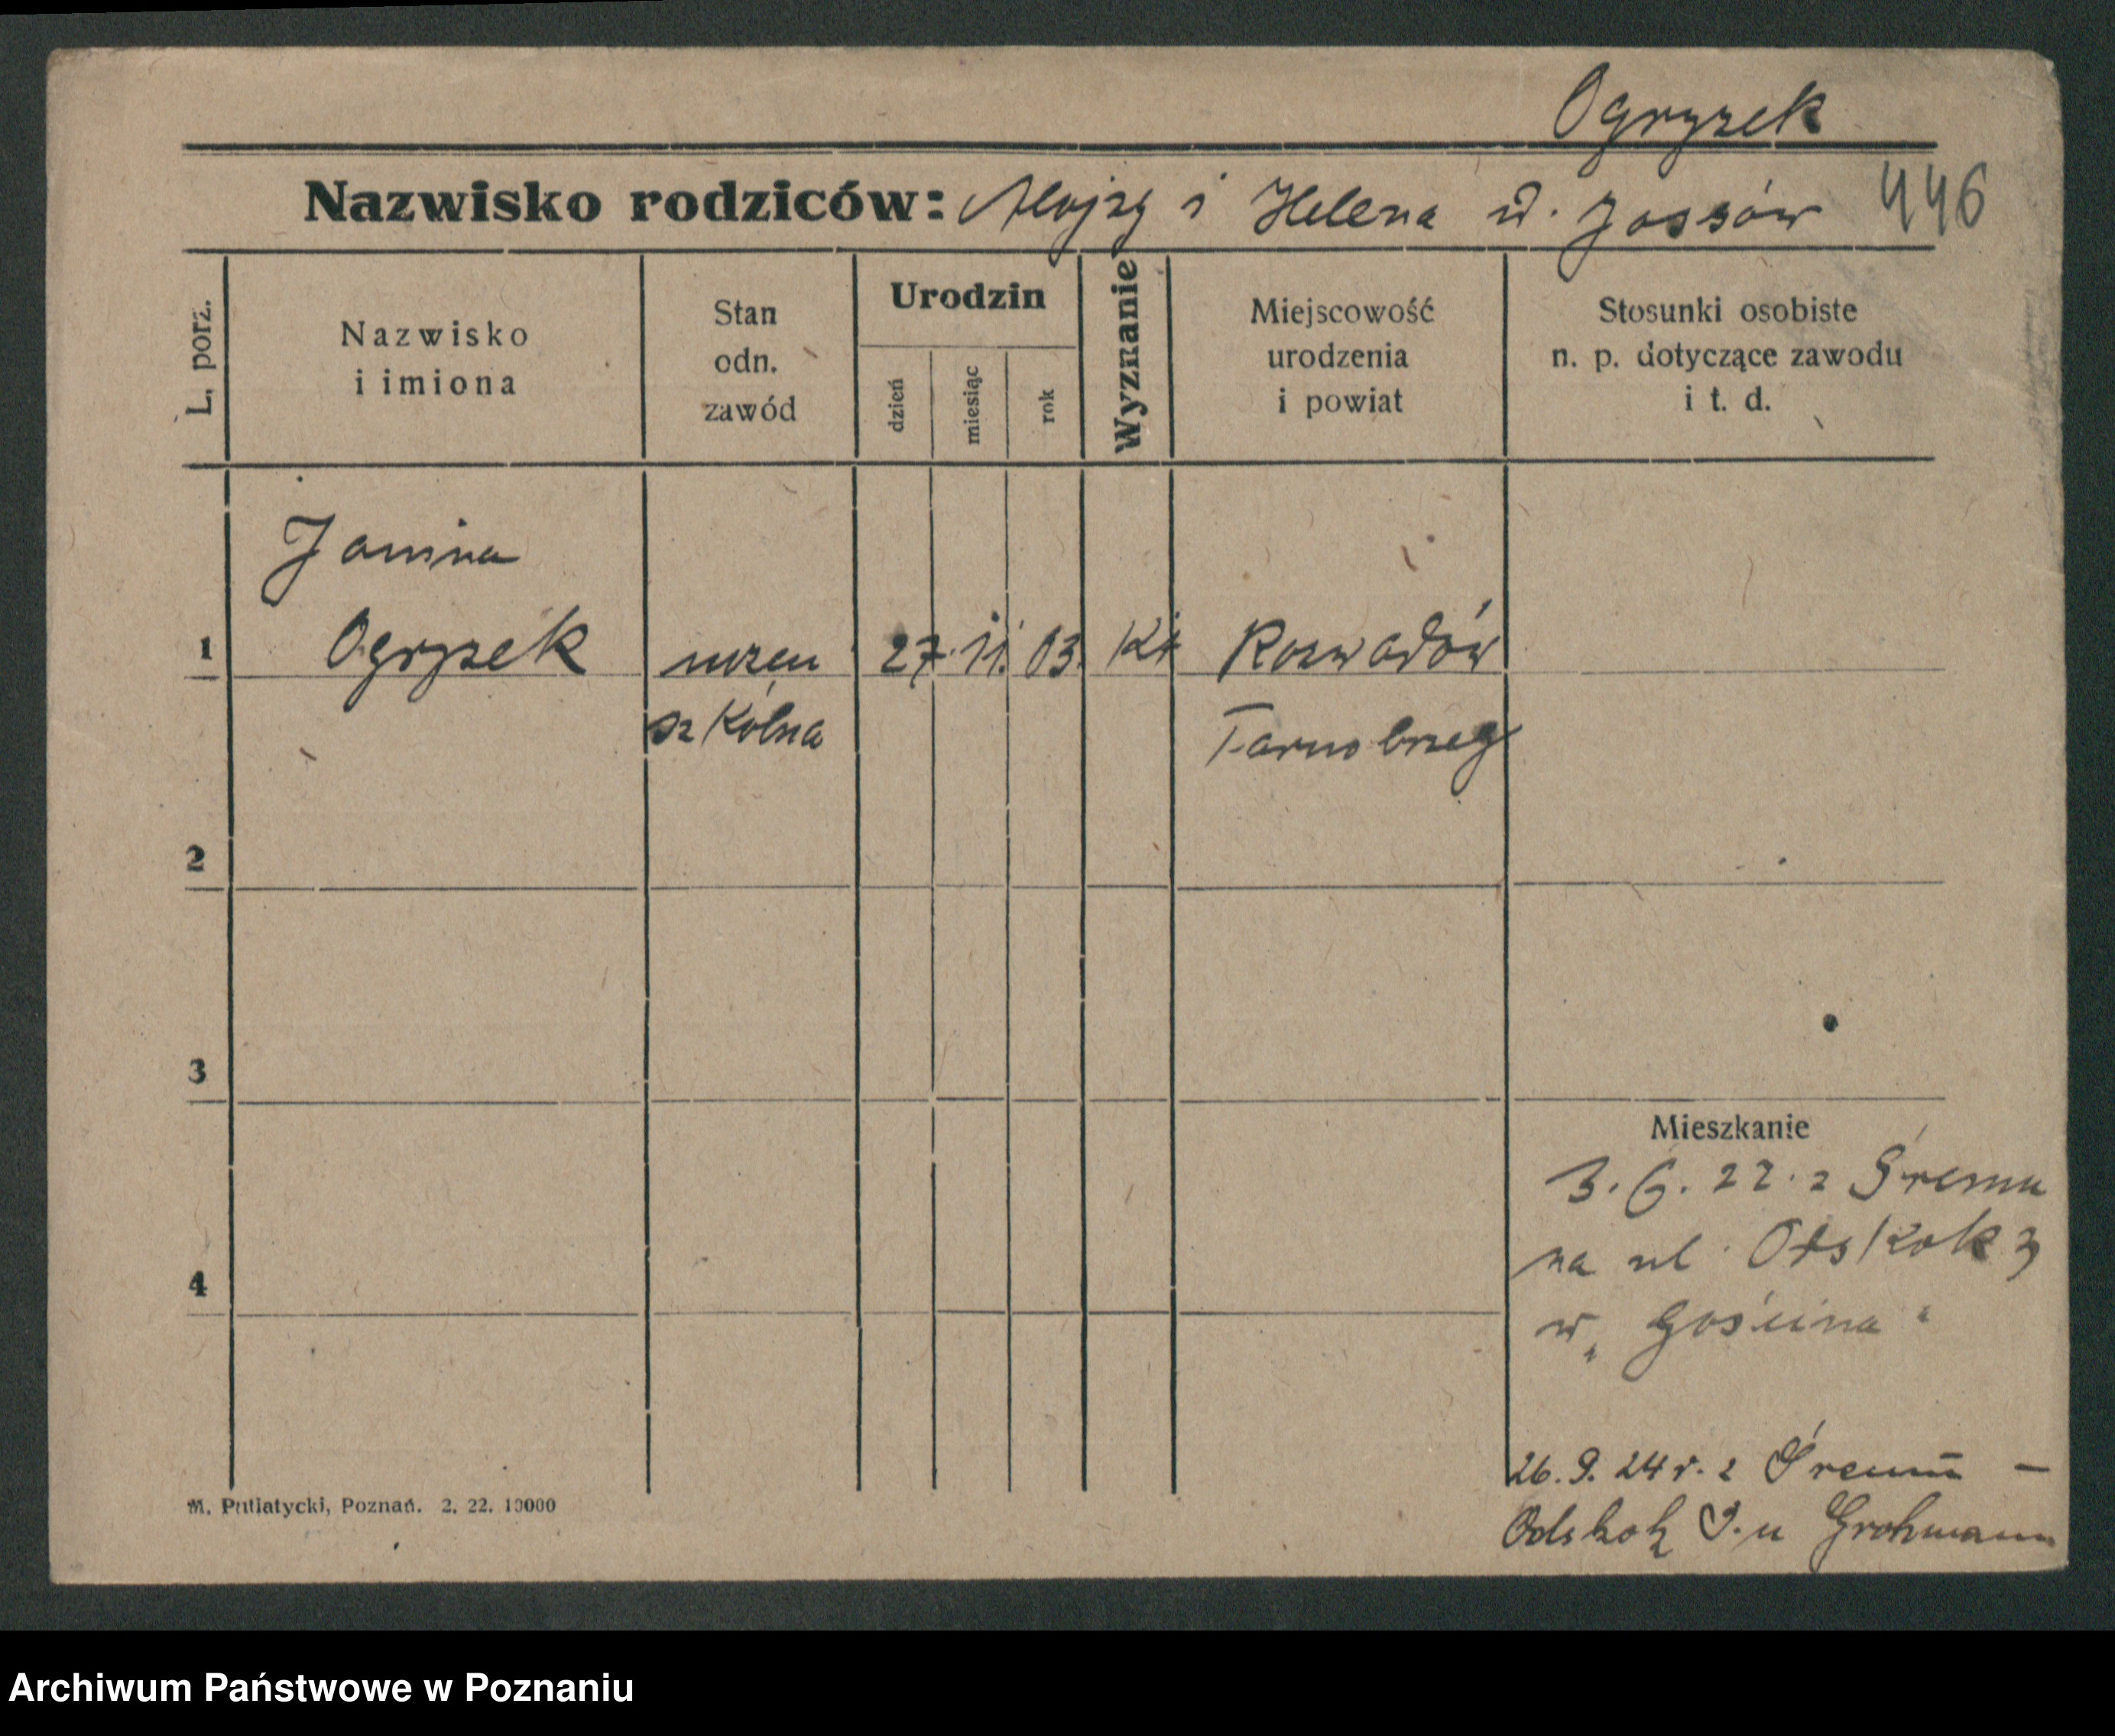 Ogryzek
Nazwisko rodziców: Alojzy i Helena d. Jossów 446
L. porz.
Nazwisko
i imiona
Stan
odn.
zawód
Urodzin
dzień
miesiąc
rok
Wyznanie
Miejscowość
urodzenia
i powiat
Stosunki osobiste
n. p. dotyczące zawodu
i t. d.
Janina
1 Ogryzek uczen 27. 11. 03. Kt Rozwadów
szkólna Tarnobrzeg
2
3
Mieszkanie
3. 6. 22. z Śremu
na ul. Otskok 3
4
w „Gościna"
26. 9. 24 r. z Śremu –
Odskok 3. u Grohmann
M. Putiatycki, Poznań. 2. 22. 10000
Archiwum Państwowe w Poznaniu